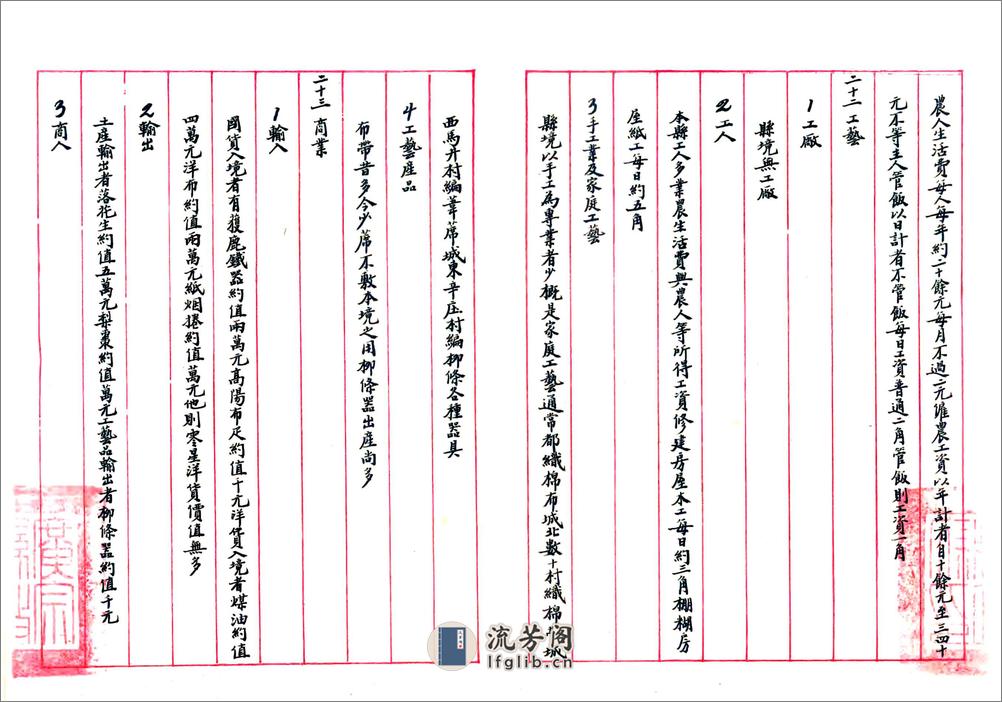 農人生活費每人每年約二十餘元每月不過二元僱農工資以年計者自十餘元至三四十
元不等主人管飯以日計者不管飯每日工資普通二角管飯則工資一角
二十二 工藝
1 工廠
縣境無工廠
2 工人
本縣工人多業農生活費與農人等所得工資修建房屋木工每日約三角棚棚房
屋紙工每日約五角
3 手工業及家庭工藝
縣境以手工為專業者少概是家庭工藝通常都織棉布城北數十村織棉 城
西馬井村編葦席城東辛庄村編柳條各種器具
4 工藝產品
布帶昔多今少席不敷本境之用柳條器出產尚多
二十三 商業
1 輸入
國貨入境者有獲鹿鐵器約值兩萬元高陽布疋約值千元洋貨入境者煤油約值
四萬元洋布約值兩萬元紙烟捲約值萬元他則零星洋貨價值無多
2 輸出
土產輸出者落花生約值五萬元梨棗約值萬元工藝品輸出者柳條器約值千元
3 商人
流芳阁
lfglib.cn